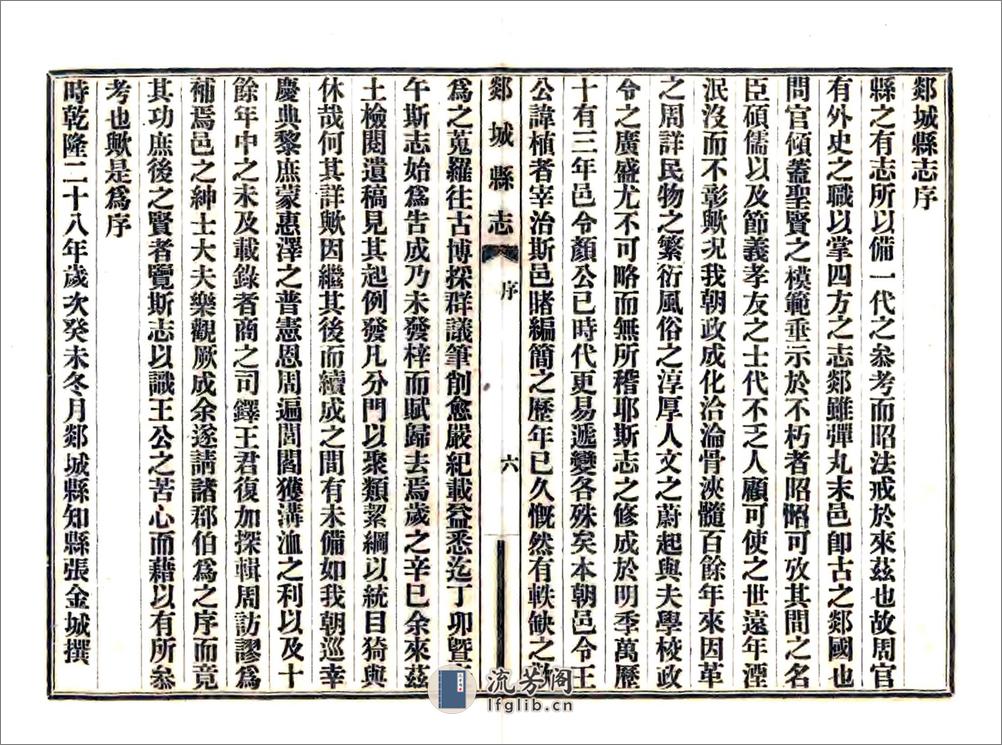 郯城縣志序
縣之有志所以備一代之參考而昭法戒於來茲也故周官
有外史之職以掌四方之志郯雖彈丸末邑卽古之郯國也
問官傾蓋聖賢之模範垂示於不朽者昭昭可攷其間之名
臣碩儒以及節義孝友之士代不乏人顧可使之世遠年湮
泯沒而不彰歟況我朝政成化洽淪骨浹髓百餘年來因革
之周詳民物之繁衍風俗之淳厚人文之蔚起與夫學校政
令之廣盛尤不可略而無所稽耶斯志之修成於明季萬歷
十有三年邑令顏公已時代更易遞變各殊矣本朝邑令王
公諱植者宰治斯邑睹編簡之歷年已久慨然有軼缺之
郯城縣志 序 六
爲之蒐羅往古博採群議筆削愈嚴紀載益悉迄丁卯暨
午斯志始爲告成乃未發梓而賦歸去焉歲之辛巳余來茲
土檢閱遺稿見其起例發凡分門以聚類絜綱以統目猗與
休哉何其詳歟因繼其後而續成之間有未備如我朝巡幸
慶典黎庶蒙惠澤之普憲恩周遍閭閻獲溝洫之利以及十
餘年中之未及載錄者商之司鐸王君復加採輯周訪謬爲
補焉邑之紳士大夫樂觀厥成余遂請諸郡伯爲之序而竟
其功庶後之賢者覽斯志以識王公之苦心而藉以有所參
考也歟是爲序
時乾隆二十八年歲次癸未冬月郯城縣知縣張金城撰
流芳阁
lfglib.cn